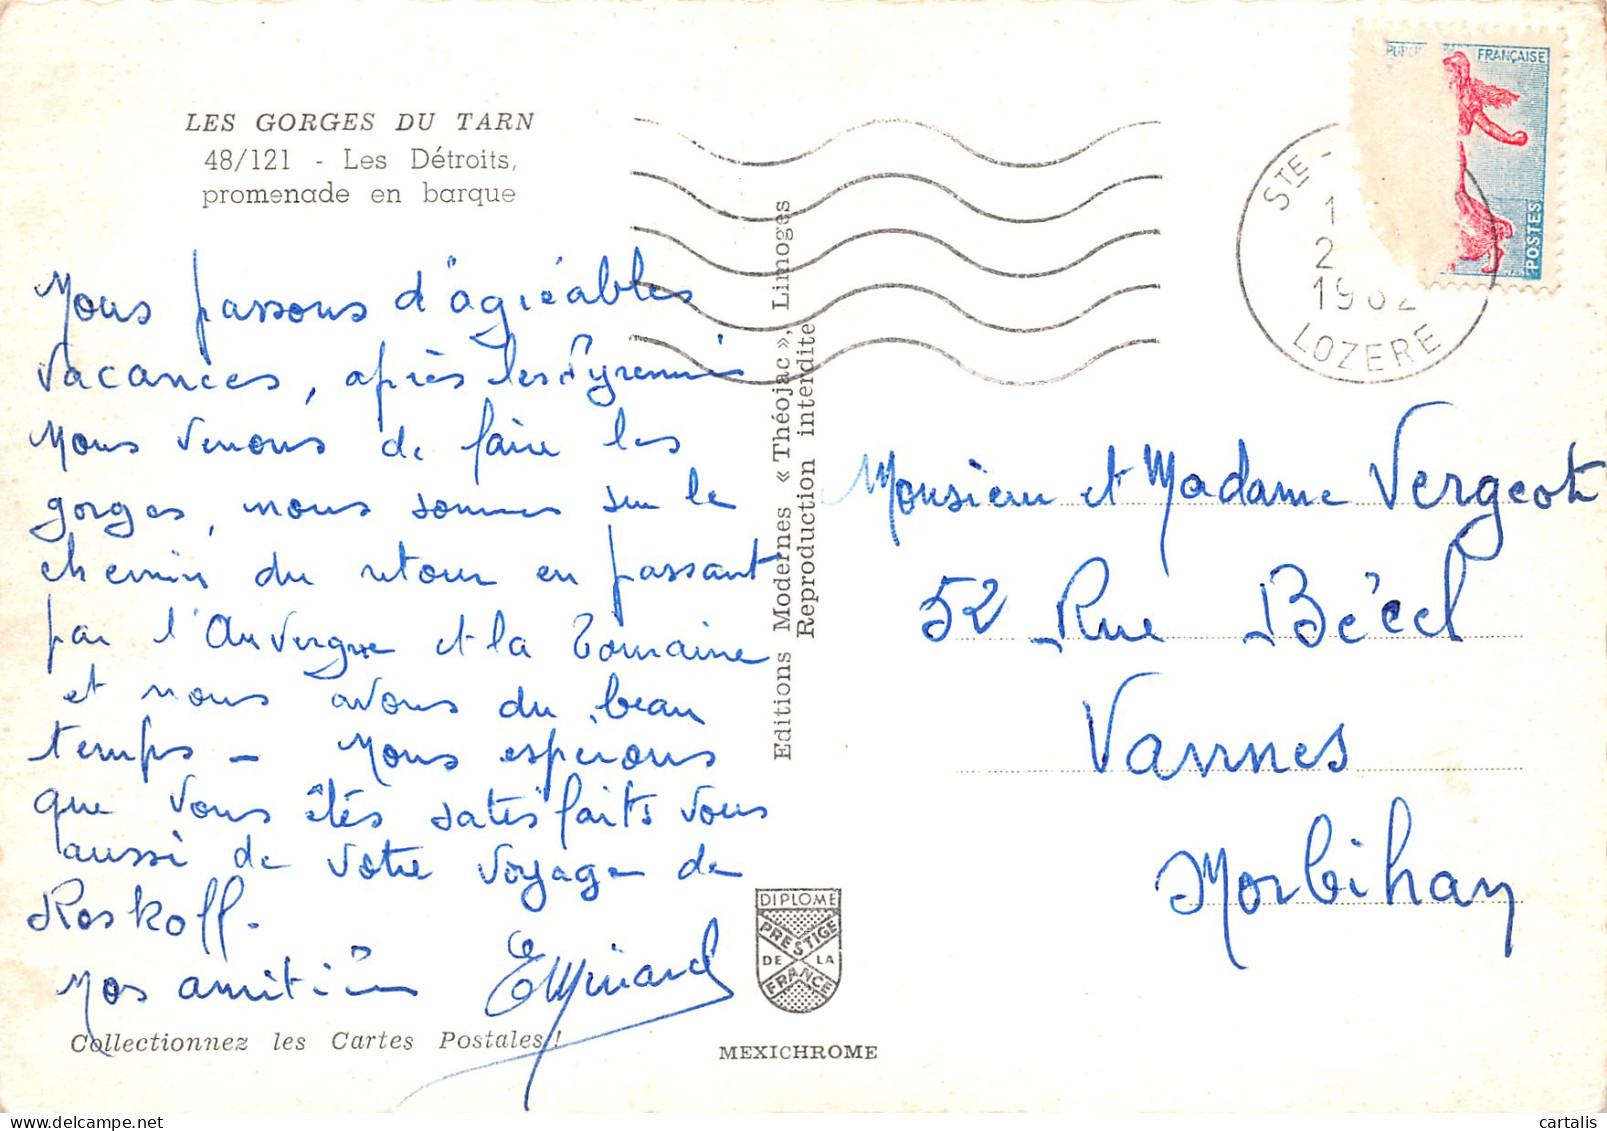 LES GORGES DU TARN
48/121 - Les Détroits,
promenade en barque
Nous passons d'agréables
vacances, après les Pyrennés
Nous venons de faire les
gorges, nous sommes sur le
chemin du retour en passant
par l'Auvergne et la Touraine
et nous avons du beau
temps - Nous espérons
que vous êtés satisfaits vous
aussi de votre voyage de
Roskoff.
Nos amitiés
Collectionnez les Cartes Postales !
Editions Modernes « Théojac », Limoges
Reproduction interdite
DIPLOME
PRESTIGE
DE LA
FRANCE
MEXICHROME
FRANÇAISE
POSTES
STE -
1962
LOZERE
Monsieur et Madame Vergeot
52 Rue Bécel
Vannes
Morbihan
cartalis